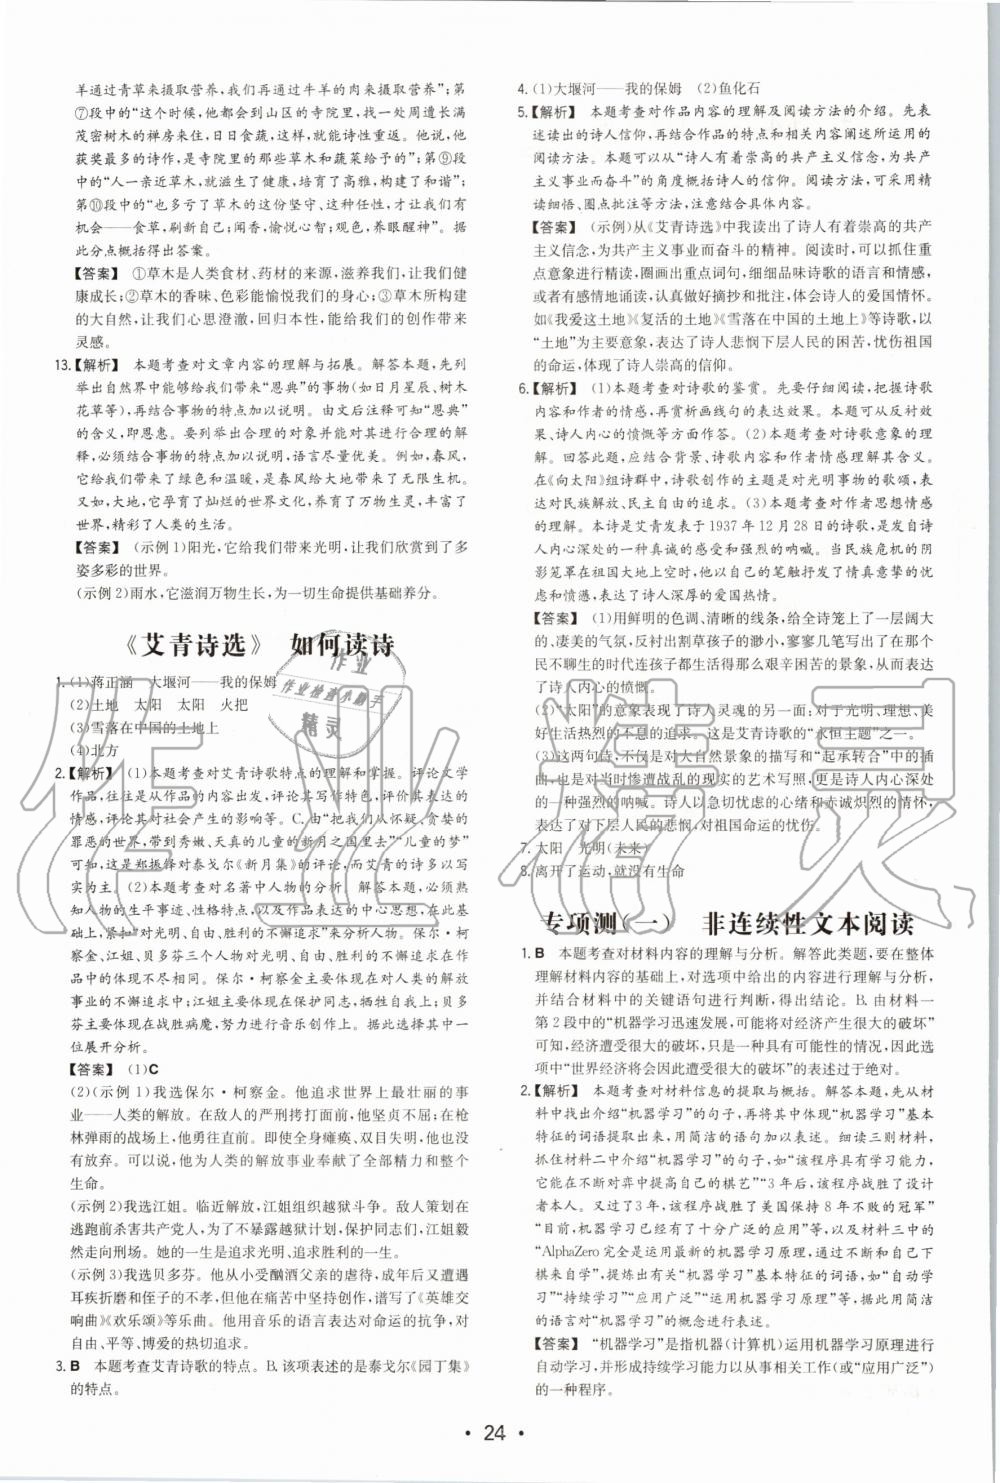 羊通过青草来摄取营养，我们再通过牛羊的肉来摄取营养”；第
⑦段中的“这个时候，他都会到山区的寺院里，找一处周遭长满
茂密树木的禅房来住，日日食蔬，这时诗性重返。他说，他
获奖最多的诗作，是寺院里的那些草木和蔬菜给予的”；第⑨段
中的“人一亲近草木，就滋生了健康，培育了高雅，构建了和谐”；
第⑩段中的“也多亏了草木的这份坚守、这种任性，才让我们有
机会——食草，刷新自己；闻香，愉悦心智；观色，养眼醒神”。
据此分点概括得出答案。
【答案】 ①草木是人类食材、药材的来源，滋养我们，让我们健
康成长；②草木的香味、色彩能愉悦我们的身心；③草木所构建
的大自然，让我们心思澄澈，回归本性，能给我们的创作带来
灵感。
13.【解析】 本题考查对文章内容的理解与拓展。解答本题，先列
举出自然界中能够给我们带来“恩典”的事物（如日月星辰、树木
花草等），再结合事物的特点加以说明。由文后注释可知“恩典”
的含义，即恩惠。要列举出合理的对象并能对其进行合理的解
释，必须结合事物的特点加以说明，语言尽量优美。例如，春风，
它给我们带来了绿色和温暖，是春风给大地带来了无限生机。
又如，大地，它孕育了灿烂的世界文化，养育了万物生灵，丰富了
世界，精彩了人类的生活。
【答案】 （示例1）阳光，它给我们带来光明，让我们欣赏到了多
姿多彩的世界。
（示例2）雨水，它滋润万物生长，为一切生命提供基础养分。
《艾青诗选》 如何读诗
1.（1）蒋正涵 大堰河——我的保姆
（2）土地 太阳 太阳 火把
（3）雪落在中国的土地上
（4）北方
2.【解析】 （1）本题考查对艾青诗歌特点的理解和掌握。评论文学
作品，往往是从作品的内容出发，评论其写作特色，评价其表达的
情感，评论其对社会产生的影响等。C.由“把我们从怀疑、贪婪的
罪恶的世界，带到秀嫩、天真的儿童的新月之国里去”“儿童的梦”
可知，这是郑振铎对泰戈尔《新月集》的评论，而艾青的诗多以写
实为主。（2）本题考查对名著中人物的分析。解答本题，必须熟
知人物的生平事迹、性格特征以及在作品中的中心思想，在此基
础上，用“追求光明、自由、胜利的一生”来分析人物。保尔·柯
察金、江姐、贝多芬三个人物对光明、自由、胜利的不懈追求在作
品中的体现不尽相同。保尔·柯察金的不懈追求中主要体现在
与病魔的不懈追求中；江姐主要体现在保护同志，牺牲自我上；贝多
芬主要体现在战胜病魔，努力进行音乐创作上。据此选择其中一
位展开分析。
【答案】 （1）C
（2）（示例1）我选保尔·柯察金。他追求世界上最壮丽的事
业——人类的解放。在敌人的严刑拷打面前，他坚贞不屈；在枪
林弹雨的战场上，他勇往直前。即使全身瘫痪、双目失明，他也没
有放弃。可以说，他为人类的解放事业奉献了全部精力和整个
生命。
（示例2）我选江姐。临近解放，江姐组织越狱斗争。敌人策划在
逃跑前杀害共产党人，为了不暴露越狱计划，保护同志们，江姐毅
然走向刑场。她的一生是追求光明、追求胜利的一生。
（示例3）我选贝多芬。他从小受酗酒父亲的虐待，成年后又遭遇
耳疾折磨和侄子的不孝，但他在痛苦中坚持创作，谱写了《英雄交
响曲》《欢乐颂》等乐曲。他用音乐的语言表达对命运的抗争，对
自由、平等、博爱的热切追求。
3. B 本题考查艾青诗歌的特点。B.该项表述的是泰戈尔《园丁集》
的特点。
4.（1）大堰河——我的保姆 （2）鱼化石
5.【解析】 本题考查对作品内容的理解及阅读方法的介绍。先表
述读出的诗人信仰，再结合作品的特点和相关内容阐述所运用的
阅读方法。本题可以从“诗人有着崇高的共产主义信念，为共产
主义事业而奋斗”的角度概括诗人的信仰。阅读方法，可采用精
读细悟、圈点批注等方法，注意结合具体内容。
【答案】 （示例）从《艾青诗选》中我读出了诗人有着崇高的共产
主义信念，为共产主义事业而奋斗的精神。阅读时，可以采用对重
点意象进行精读，圈画出重点词句，细细品味诗歌的语言和情感，
或者有感情地诵读，认真做好摘抄和批注，体会诗人的爱国情怀。
如《我爱这土地》《复活的土地》《雪落在中国的土地上》等诗歌，以
“土地”为主要意象，表达了诗人悲悯下层人民的困苦，忧伤祖国
的命运，体现了诗人崇高的信仰。
6.【解析】 （1）本题考查对诗歌的鉴赏。先要仔细阅读，把握诗歌
内容和作者的情感，再赏析画线句的表达效果。本题可以从反衬效
果、诗人内心的愤慨等方面作答。（2）本题考查对诗歌意象的理
解。回答此题，应结合背景、诗歌内容和作者情感理解其含义。在
《向太阳》组诗群中，诗歌创作的主题是对光明事物的歌颂，表
达对民族解放、民主自由的追求。（3）本题考查对作者思想情感
的理解。本诗是艾青发表于1937年12月28日的诗歌，是发自诗
人内心深处的一种真诚的感受和强烈的呐喊。当民族危机的阴
影笼罩在祖国大地上空时，诗人以自己的笔触抒发了情真意挚的忧
患意识，表达了诗人深厚的爱国热情。
【答案】 （1）用鲜明的色调、清晰的线条，给全诗笼上了一层阔大
的、凄美的气氛，反衬出割草孩子的渺小，寥寥几笔，勾勒出在那个
民不聊生的时代连孩子都过早地品尝艰辛困苦的景象，从而表达
了诗人内心的愤慨。
（2）“太阳”的意象表现了诗人灵魂的另一面：对于光明、理想、美
好生活热烈的不息的追求。这是艾青诗歌的“永恒主题”之一。
（3）这两句诗，不仅是对大自然景象的描写和“起承转合”中的起
笔，也是对当时惨遭战乱的现实的艺术写照，更是诗人内心深处
的一种强烈的呐喊。诗人以急切忧虑的心绪和赤诚炽烈的情怀，
表达了对下层人民的悲悯，对祖国命运的忧伤。
7. 太阳 光明（未来）
8. 离开了运动，就没有生命
专项测（一） 非连续性文本阅读
1. B 本题考查对材料内容的理解与分析。解答此类题，要在整体
理解材料内容的基础上，对选项中给出的内容进行理解与分析，
并结合材料中的关键语句进行判断，得出结论。B.由材料一
第2段中的“机器学习迅速发展，可能将对经济产生很大的破坏”
可知，经济遭受很大的破坏，只是一种具有可能性的情况，因此选
项中“世界经济将会因此遭受很大的破坏”的表述过于绝对。
2.【解析】 本题考查对材料信息的提取与概括。解答本题，先从材
料中找出介绍“机器学习”的句子，再将其中体现“机器学习”基本
特征的词语提取出来，用简洁的语句加以表述。细读三则材料，
抓住材料二中介绍“机器学习”的句子，如“该程序具有学习能力，
它能在不断对弈中提高自己的棋艺”“3年后，该程序战胜了设计
者本人。又过了3年，该程序战胜了美国保持8年不败的冠军”
“目前，机器学习已经有了十分广泛的应用”等，以及材料三中的
“AlphaZero完全是运用最新的机器学习原理，通过不断和自己下
棋来自学”，提炼出有关“机器学习”基本特征的词语，如“自动学
习”“持续学习”“应用广泛”“运用机器学习原理”等，据此用简洁
的语言对“机器学习”的概念进行表述。
【答案】 “机器学习”是指机器（计算机）运用机器学习原理进行
自动学习，并形成持续学习能力以从事相关工作（或“应用广泛”）
的一种程序。
作业
作业检查小助手
精灵
作业精灵
· 24 ·